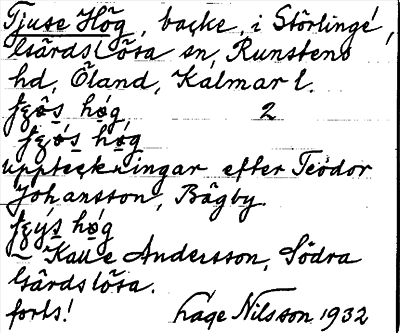 Tjuse Hög, backe, i Störlinge,
Gärdslösa sn, Runstens
hd, Öland, Kalmar l.
hög, 2
hög
uppteckningar efter Teodor
Johansson, Bägby.
hög
~ Kalle Andersson, Södra
Gärdslösa.
forts! Hage Nilsson 1932